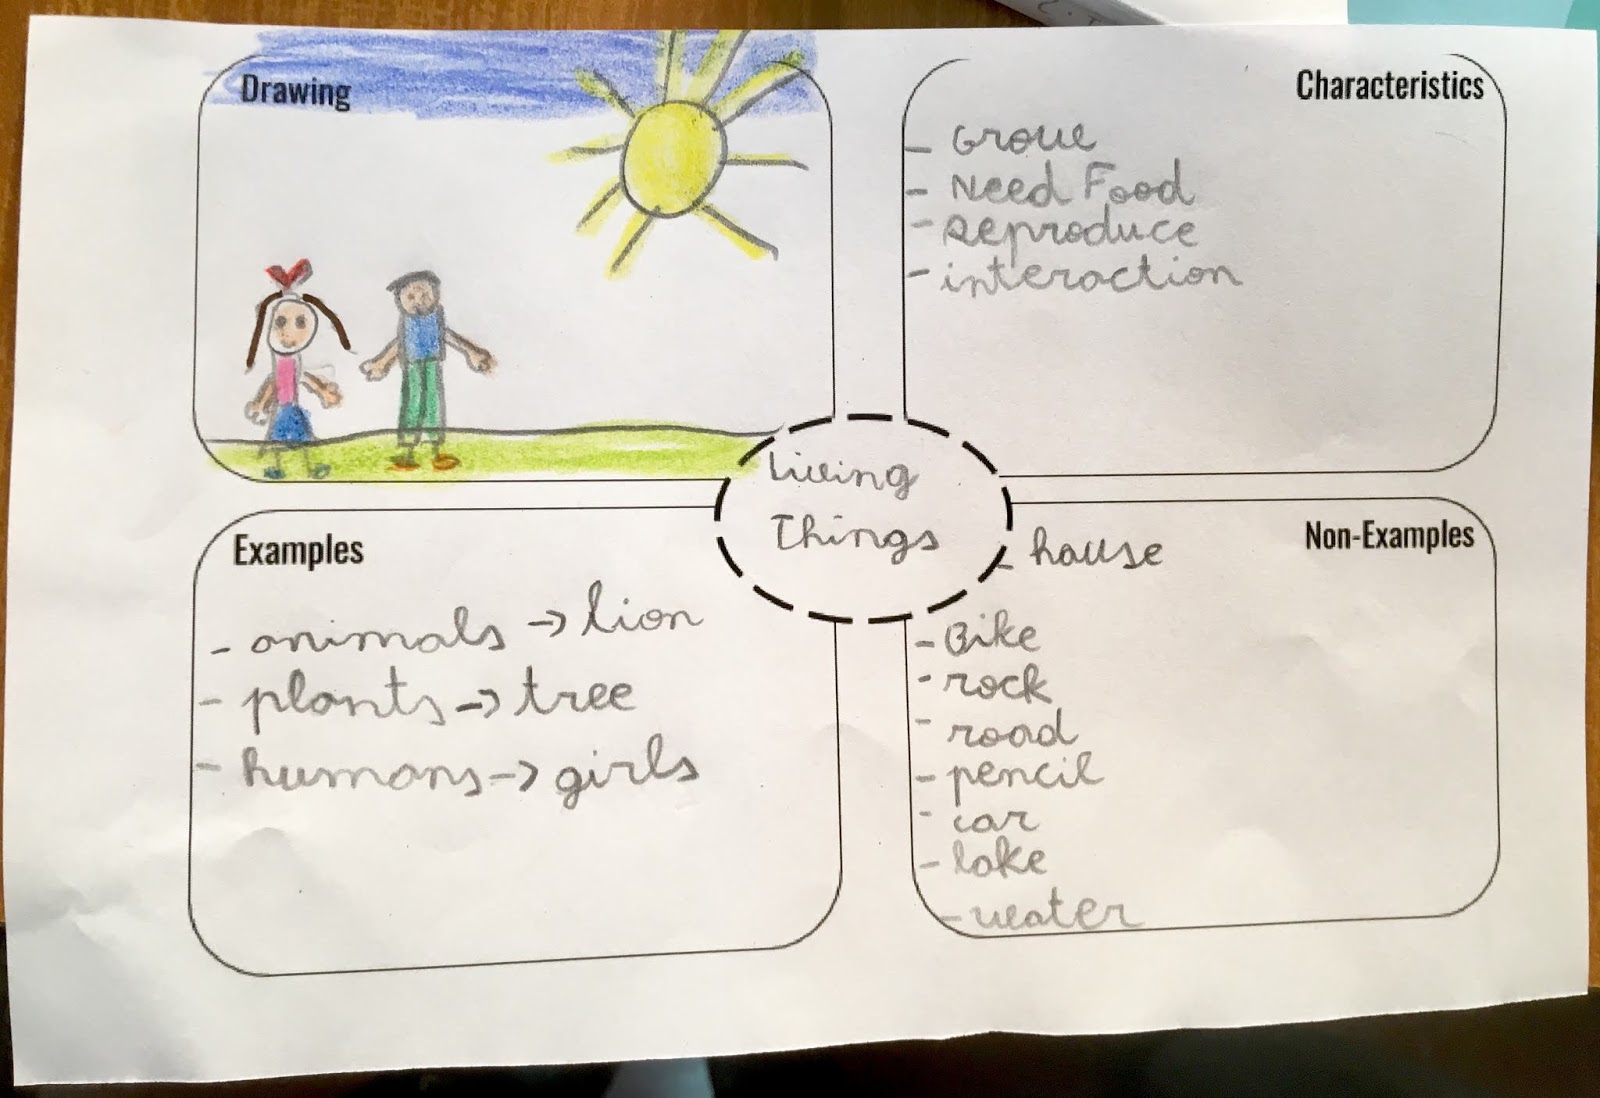 Drawing
Characteristics
- Growe
- Need Food
- Reproduce
- interaction
Living
Things
Examples
- animals → lion
- plants → tree
- humans → girls
Non-Examples
- house
- Bike
- rock
- road
- pencil
- car
- lake
- water